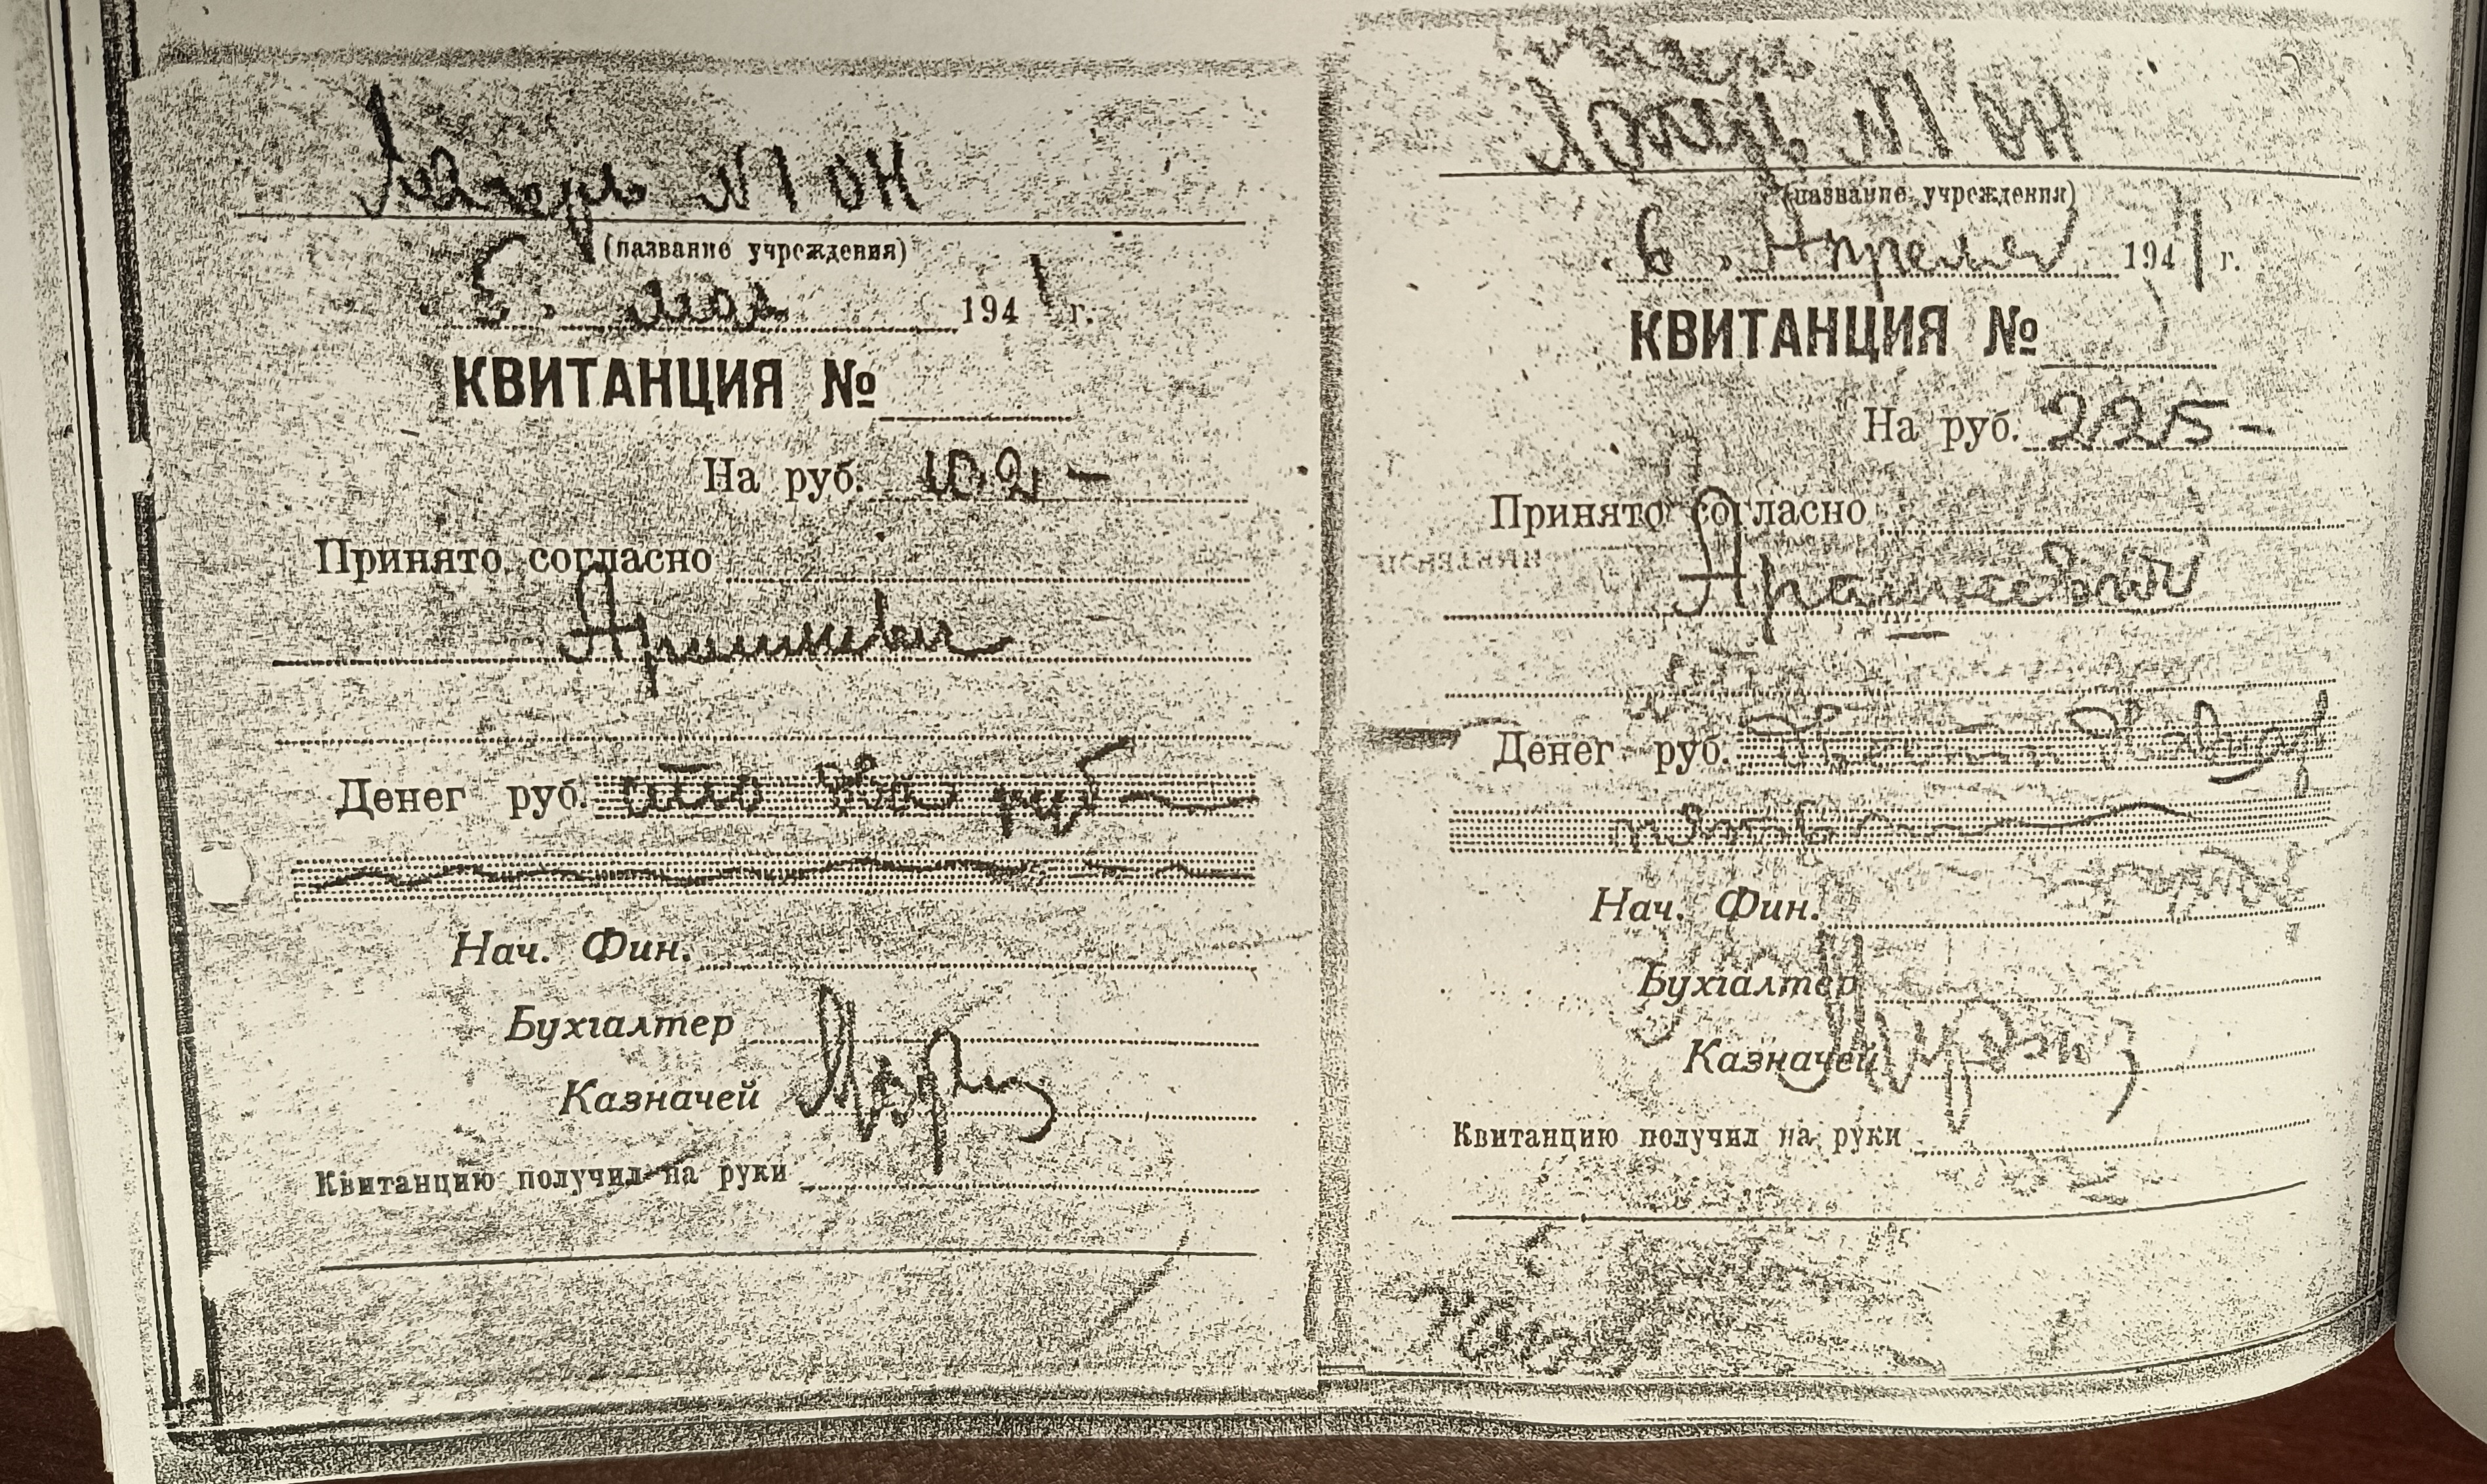 Лагерь №1 ОН
(название учреждения)
5. мая 1941 г.
КВИТАНЦИЯ №
На руб. 102 –
Принято согласно
Арашкевич
Денег руб. сто два руб
Нач. Фин.
Бухгалтер
Казначей
Квитанцию получил на руки
Лагерь №1 ОН
(название учреждения)
6. Апреля 1941 г.
КВИТАНЦИЯ №
На руб. 225 –
Принято согласно
Арашкевич
Денег руб. Двести Двадц
пять
Нач. Фин.
Бухгалтер
Казначей
Квитанцию получил на руки